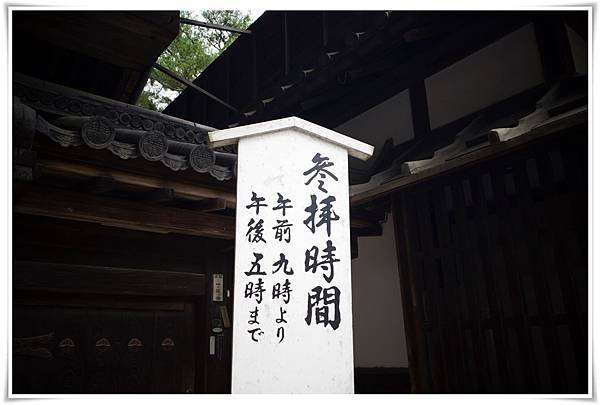 参拝時間
午前九時より
午後五時まで